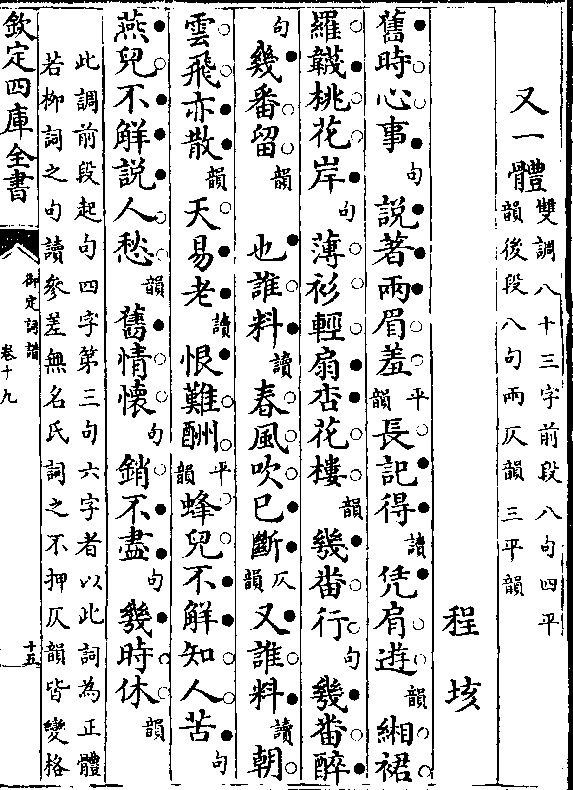 又一體 雙調八十三字前段八句四平
韻後段八句兩仄韻三平韻
程垓
舊時心事句說著兩眉羞平韻長記得讀凭肩遊韻緗裙
羅韈桃花岸句薄衫輕扇杏花樓韻幾番行句幾番醉
句幾番留韻 也誰料讀春風吹已斷仄韻又誰料讀朝
雲飛亦散韻天易老讀恨難酬平韻蜂兒不解知人苦句
燕兒不解說人愁韻舊情懷句銷不盡句幾時休韻
此調前段起句四字第三句六字者以此詞為正體
若柳詞之句讀參差無名氏詞之不押仄韻皆變格
欽定四庫全書
御定詞譜
卷十九
十五